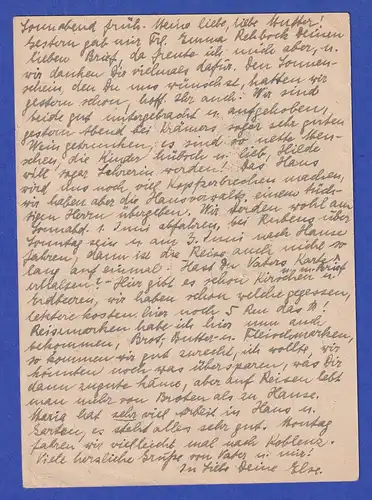 Sonnabend früh. Meine liebe, liebe Mutter!
Gestern gab mir Frl. Emma Rehbock Deinen
lieben Brief, da freute ich mich aber, u.
wir danken Dir vielmals dafür. Den Sonnen-
schein, den Du uns wünschst, hatten wir
gestern schon, hoff. Ihr auch! Wir sind
beide gut untergebracht u. aufgehoben,
gestern Abend bei Krämers, sogar sehr guten
Wein getrunken, es sind so nette Men-
schen, die Kinder hübsch u. lieb, Hilde
will sogar Lehrerin werden! Das Haus
wird uns noch viel Kopfzerbrechen machen,
wir haben aber die Hausvorsatz. einem tüch-
tigen Herrn übergeben. Wir werden wohl am
Sonnabd. 1. Juni abfahren, bei Rubens über
Sonntag sein u. am 3. Juni nach Hause
fahren, dann ist die Reise auch nicht so
lang auf einmal. Hast Du Vaters Karte
u. m. Brief
erhalten? - Hier gibt es schon Kirschen u.
Erdbeeren, wir haben schon welche gegessen,
letztere kosten hier noch 5 Rm das ℔!
Reisemarken habe ich hier nun auch
bekommen, Brot, Butter- u. Fleischmarken,
so kommen wir gut zurecht, ich wollte, wir
könnten noch was übersparen, was Dir
dann zugute käme, aber auf Reisen lebt
man mehr von Broten als zu Hause.
Maria hat sehr viel Arbeit in Haus u.
Garten, es steht alles sehr gut. Montag
fahren wir vielleicht mal nach Koblenz.
Viele herzliche Grüße von Vater u. mir!
In Liebe Deine Else.